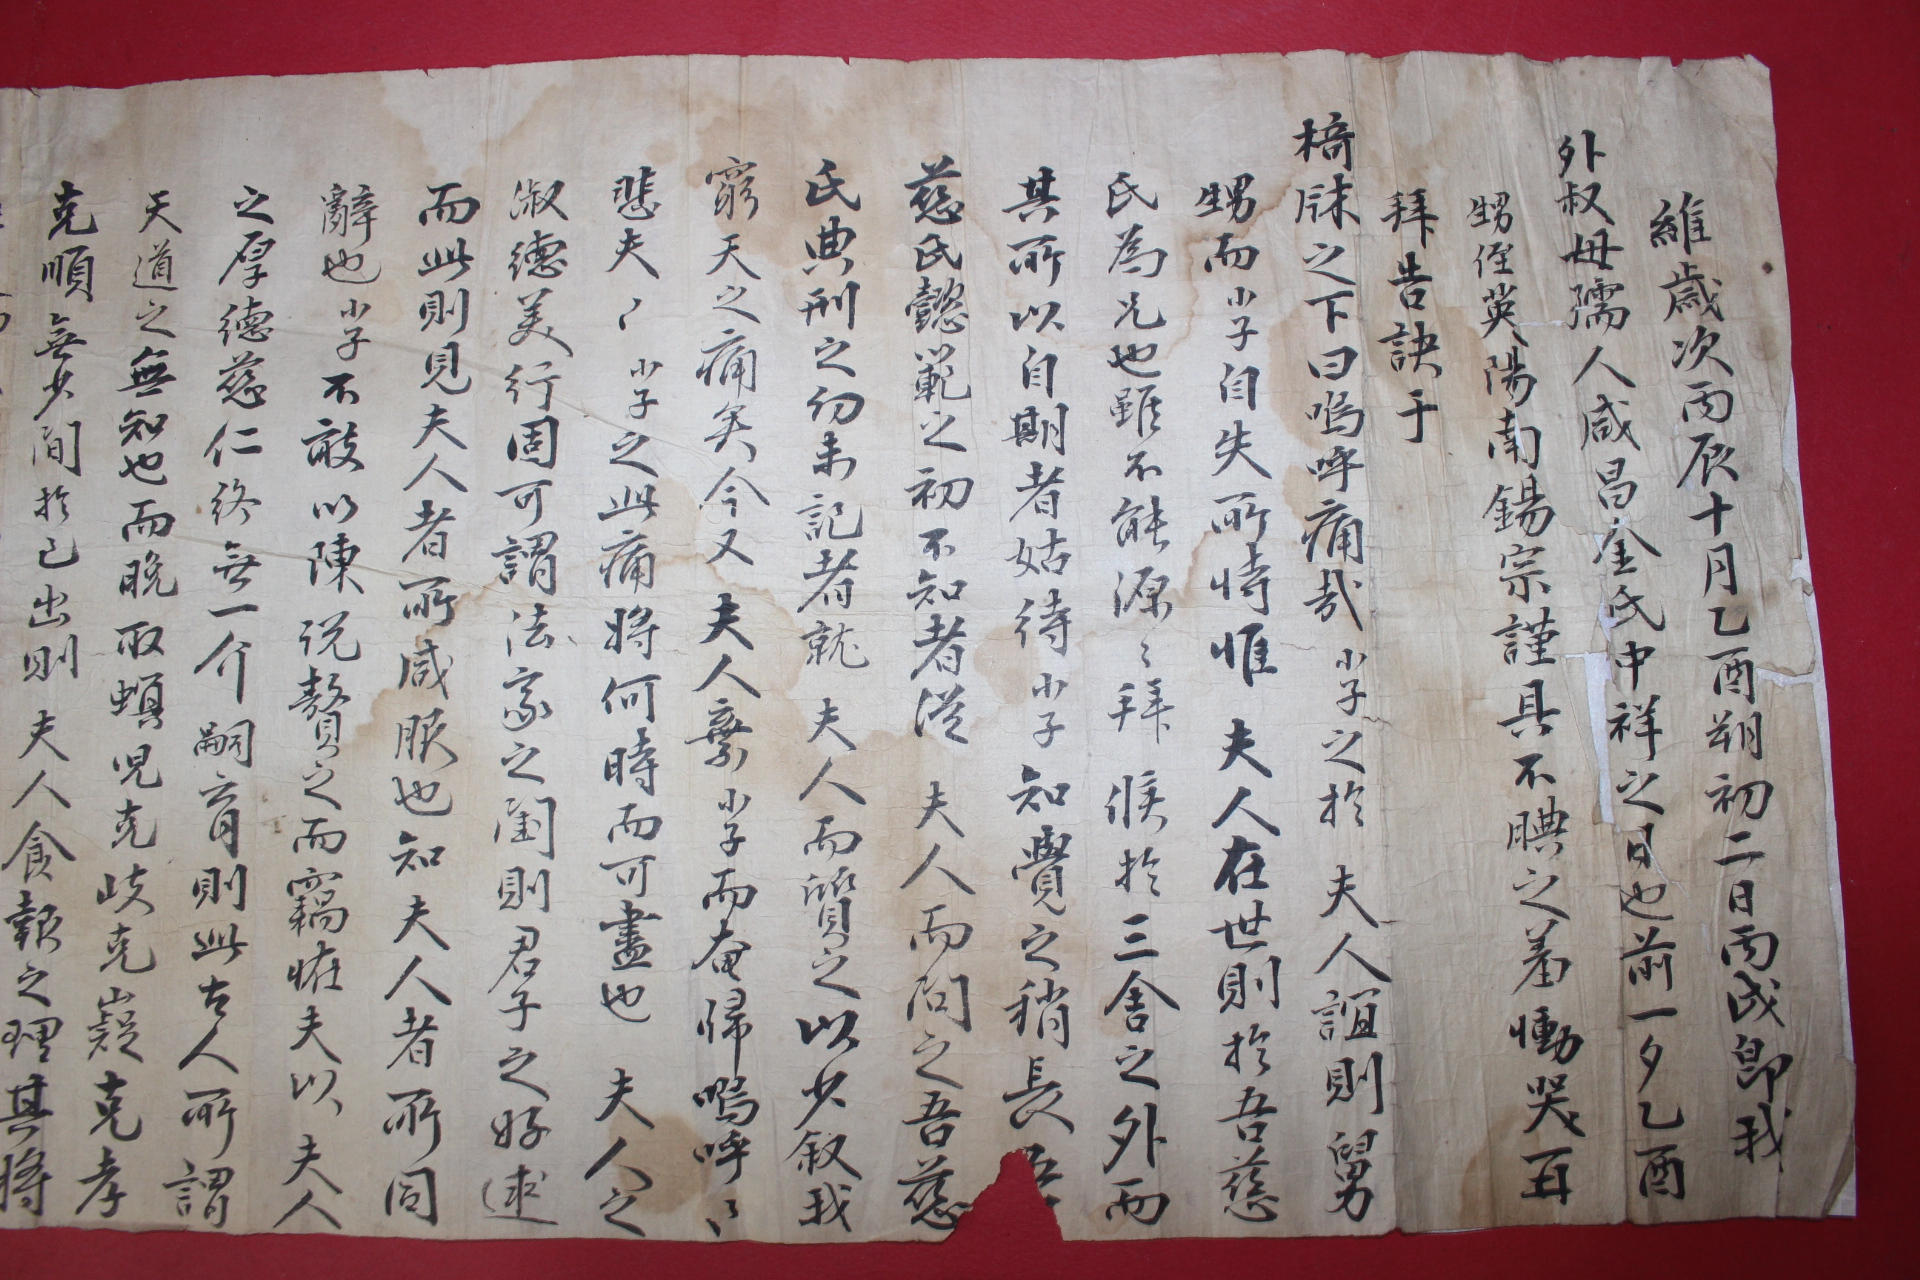 維歲次丙辰十月乙酉朔初二日丙戌卽我
外叔母孺人咸昌金氏中祥之日也前一夕乙酉
甥侄英陽南錫宗謹具不腆之羞慟哭再
拜告訣于
椅牀之下曰嗚呼痛哉小子之於夫人誼則舅
甥而小子自失所恃惟夫人在世則於吾慈
氏為兄也雖不能源〻拜候於三舍之外而
其所以自期者姑待小子知覺之稍長
慈氏懿範之初不知者從夫人而問之吾慈
氏典刑之初未記者就夫人而質之以少叙我
窮天之痛矣今又夫人棄小子而奄歸嗚呼〻
悲夫〻小子之此痛將何時而可盡也夫人之
淑德美行固可謂法家之閨則君子之好逑
而此則見夫人者所咸服也知夫人者所同
辭也小子不敢以陳說贅之而竊惟夫以夫人
之厚德慈仁終無一介嗣育則此古人所謂
天道之無知也而晚取螟児克岐克嶷克孝
克順無少間於己出則夫人食報之理其將